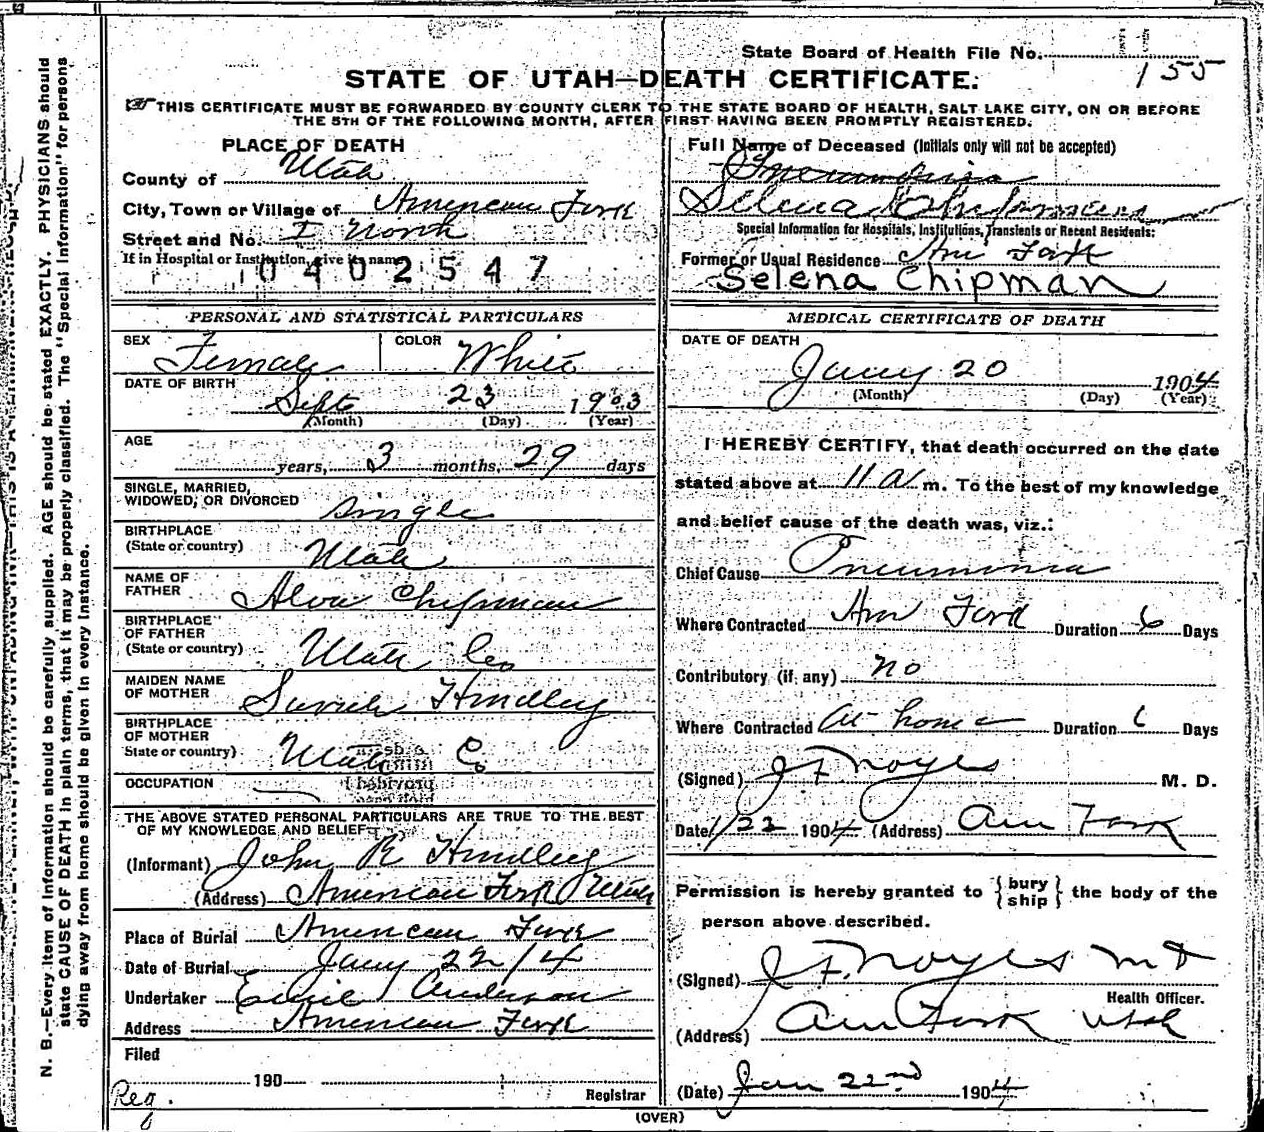 State Board of Health File No. 155
STATE OF UTAH—DEATH CERTIFICATE.
THIS CERTIFICATE MUST BE FORWARDED BY COUNTY CLERK TO THE STATE BOARD OF HEALTH, SALT LAKE CITY, ON OR BEFORE
THE 5TH OF THE FOLLOWING MONTH, AFTER FIRST HAVING BEEN PROMPTLY REGISTERED.
PLACE OF DEATH
County of Utah
City, Town or Village of American Fork
Street and No. 1 North
If in Hospital or Institution, give its name
0402547
Full Name of Deceased (Initials only will not be accepted)
Selena Chipman
Special Information for Hospitals, Institutions, Transients or Recent Residents:
Former or Usual Residence Am Fork
Selena Chipman
PERSONAL AND STATISTICAL PARTICULARS
SEX Female COLOR White
DATE OF BIRTH Sept 23 1903
(Month) (Day) (Year)
AGE
years, 3 months, 29 days
SINGLE, MARRIED,
WIDOWED, OR DIVORCED Single
BIRTHPLACE
(State or country) Utah
NAME OF
FATHER Alva Chipman
BIRTHPLACE
OF FATHER
(State or country) Utah Co
MAIDEN NAME
OF MOTHER Sarah Hindley
BIRTHPLACE
OF MOTHER
State or country) Utah Co
OCCUPATION
THE ABOVE STATED PERSONAL PARTICULARS ARE TRUE TO THE BEST
OF MY KNOWLEDGE AND BELIEF
(Informant) John R Hindley
(Address) American Fork Utah
Place of Burial American Fork
Date of Burial Jany 22/4
Undertaker Emil Anderson
Address American Fork
Filed
190
Reg. Registrar
MEDICAL CERTIFICATE OF DEATH
DATE OF DEATH
Jany 20 1904
(Month) (Day) (Year)
I HEREBY CERTIFY, that death occurred on the date
stated above at 11 a m. To the best of my knowledge
and belief cause of the death was, viz.:
Chief Cause Pneumonia
Where Contracted Am Fork Duration 6 Days
Contributory (if any) no
Where Contracted At home Duration 6 Days
(Signed) J F Noyes M. D.
Date 1/22 1904 (Address) Am Fork
Permission is hereby granted to {bury
ship} the body of the
person above described.
(Signed) J. F. Noyes MD
Health Officer.
(Address) Am Fork Utah
(Date) Jan 22nd 1904
(OVER)
N. B.—Every item of information should be carefully supplied. AGE should be stated EXACTLY. PHYSICIANS should
state CAUSE OF DEATH in plain terms, that it may be properly classified. The "Special Information" for persons
dying away from home should be given in every instance.